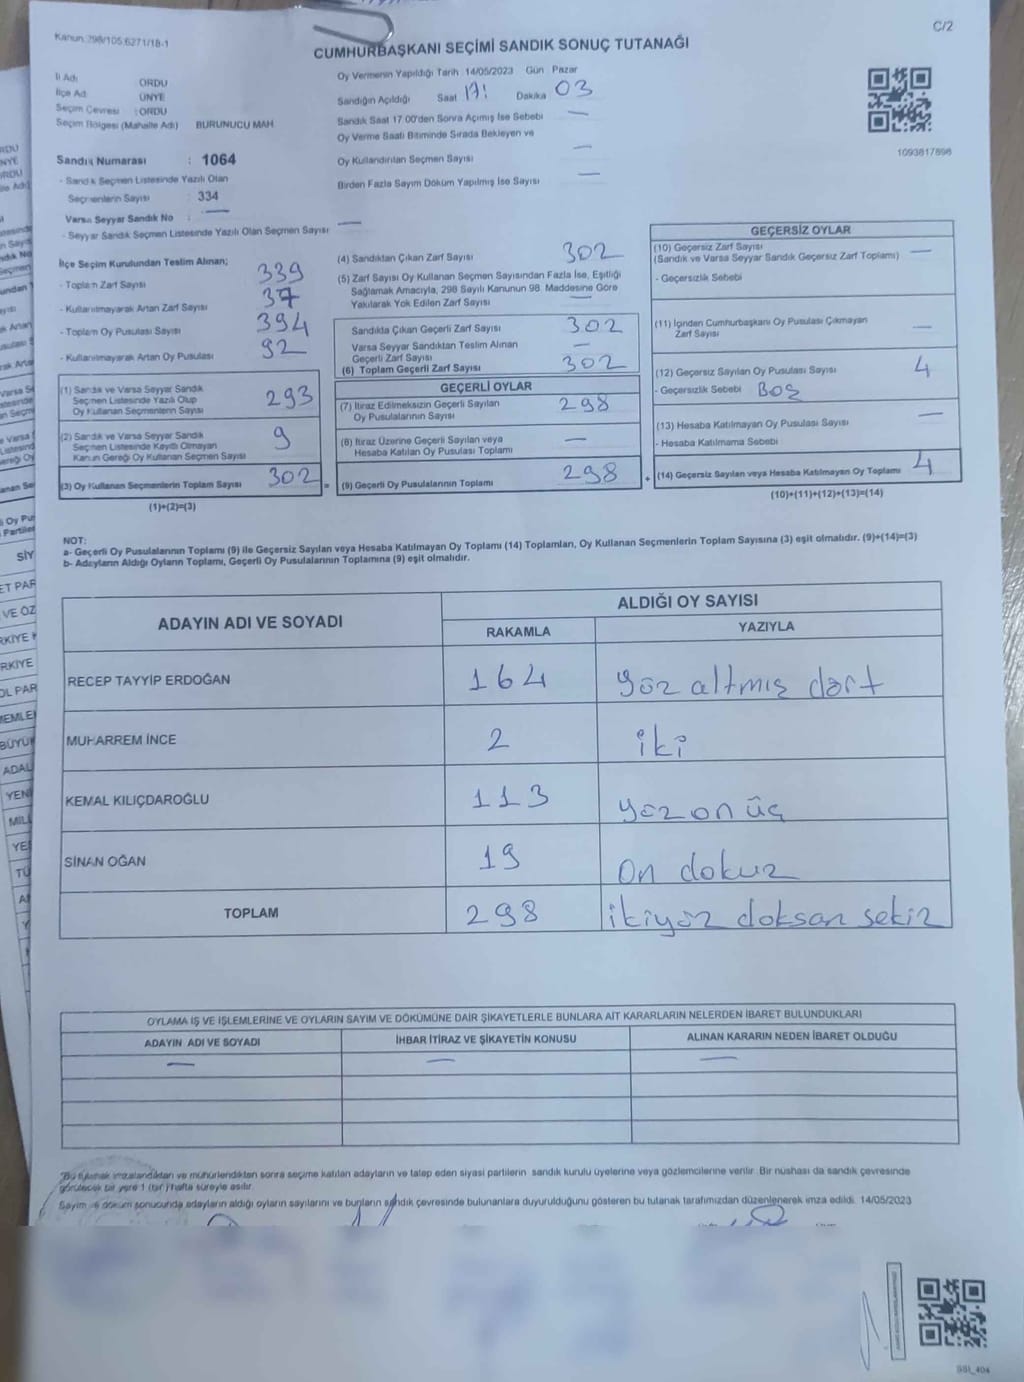 Kanun:298/105;6271/18-1
C/2
CUMHURBAŞKANI SEÇİMİ SANDIK SONUÇ TUTANAĞI
İl Adı ORDU
İlçe Ad ÜNYE
Seçim Çevresi :ORDU
Seçim Bölgesi (Mahalle Adı) BURUNUCU MAH.
Sandık Numarası : 1064
- Sandık Seçmen Listesinde Yazılı Olan
Seçmenlerin Sayısı : 334
Varsa Seyyar Sandık No : —
- Seyyar Sandık Seçmen Listesinde Yazılı Olan Seçmen Sayısı —
Oy Vermenin Yapıldığı Tarih :14/05/2023 Gün Pazar
Sandığın Açıldığı Saat 17! Dakika 03
Sandık Saat 17.00'den Sonra Açımış İse Sebebi —
Oy Verme Saati Bitiminde Sırada Bekleyen ve
Oy Kullandırılan Seçmen Sayısı —
Birden Fazla Sayım Döküm Yapılmış İse Sayısı —
1093817898
İlçe Seçim Kurulundan Teslim Alınan;
- Toplam Zarf Sayısı 339
- Kullanılmayarak Artan Zarf Sayısı 37
- Toplam Oy Pusulası Sayısı 394
- Kullanılmayarak Artan Oy Pusulası 92
(1) Sandık ve Varsa Seyyar Sandık
Seçmen Listesinde Yazılı Olup
Oy Kullanan Seçmenlerin Sayısı 293
(2) Sandık ve Varsa Seyyar Sandık
Seçmen Listesinde Kayıtlı Olmayan
Kanun Gereği Oy Kullanan Seçmen Sayısı 9
(3) Oy Kullanan Seçmenlerin Toplam Sayısı 302 =
(1)+(2)=(3)
(4) Sandıktan Çıkan Zarf Sayısı 302
(5) Zarf Sayısı Oy Kullanan Seçmen Sayısından Fazla İse, Eşitliği
Sağlamak Amacıyla, 298 Sayılı Kanunun 98. Maddesine Göre
Yakılarak Yok Edilen Zarf Sayısı —
Sandıkta Çıkan Geçerli Zarf Sayısı 302
Varsa Seyyar Sandıktan Teslim Alınan
Geçerli Zarf Sayısı —
(6) Toplam Geçerli Zarf Sayısı 302
GEÇERLİ OYLAR
(7) İtiraz Edilmeksizin Geçerli Sayılan
Oy Pusulalarının Sayısı 298
(8) İtiraz Üzerine Geçerli Sayılan veya
Hesaba Katılan Oy Pusulası Toplamı —
(9) Geçerli Oy Pusulalarının Toplamı 298 +
GEÇERSİZ OYLAR
(10) Geçersiz Zarf Sayısı
(Sandık ve Varsa Seyyar Sandık Geçersiz Zarf Toplamı) —
- Geçersizlik Sebebi
(11) İçinden Cumhurbaşkanı Oy Pusulası Çıkmayan
Zarf Sayısı —
(12) Geçersiz Sayılan Oy Pusulası Sayısı 4
- Geçersizlik Sebebi BOŞ
(13) Hesaba Katılmayan Oy Pusulası Sayısı —
- Hesaba Katılmama Sebebi
(14) Geçersiz Sayılan veya Hesaba Katılmayan Oy Toplamı 4
(10)+(11)+(12)+(13)=(14)
NOT:
a- Geçerli Oy Pusulalarının Toplamı (9) ile Geçersiz Sayılan veya Hesaba Katılmayan Oy Toplamı (14) Toplamları, Oy Kullanan Seçmenlerin Toplam Sayısına (3) eşit olmalıdır. (9)+(14)=(3)
b- Adayların Aldığı Oyların Toplamı, Geçerli Oy Pusulalarının Toplamına (9) eşit olmalıdır.
ADAYIN ADI VE SOYADI
ALDIĞI OY SAYISI
RAKAMLA YAZIYLA
RECEP TAYYİP ERDOĞAN 164 yöz altmış dört
MUHARREM İNCE 2 iki
KEMAL KILIÇDAROĞLU 113 yöz on üç
SİNAN OĞAN 19 on dokuz
TOPLAM 298 ikiyöz doksan sekiz
OYLAMA İŞ VE İŞLEMLERİNE VE OYLARIN SAYIM VE DÖKÜMÜNE DAİR ŞİKAYETLERLE BUNLARA AİT KARARLARIN NELERDEN İBARET BULUNDUKLARI
ADAYIN ADI VE SOYADI İHBAR İTİRAZ VE ŞİKAYETİN KONUSU ALINAN KARARIN NEDEN İBARET OLDUĞU
— — —
"Bu tutanak imzalandıktan ve mühürlendikten sonra seçime katılan adayların ve talep eden siyasi partilerin sandık kurulu üyelerine veya gözlemcilerine verilir. Bir nüshası da sandık çevresinde
görülecek bir yere 1 (bir) hafta süreyle asılır.
Sayım ve döküm sonucunda adayların aldığı oyların sayılarını ve bunların sandık çevresinde bulunanlara duyurulduğunu gösteren bu tutanak tarafımızdan düzenlenerek imza edildi. 14/05/2023
SSI_404